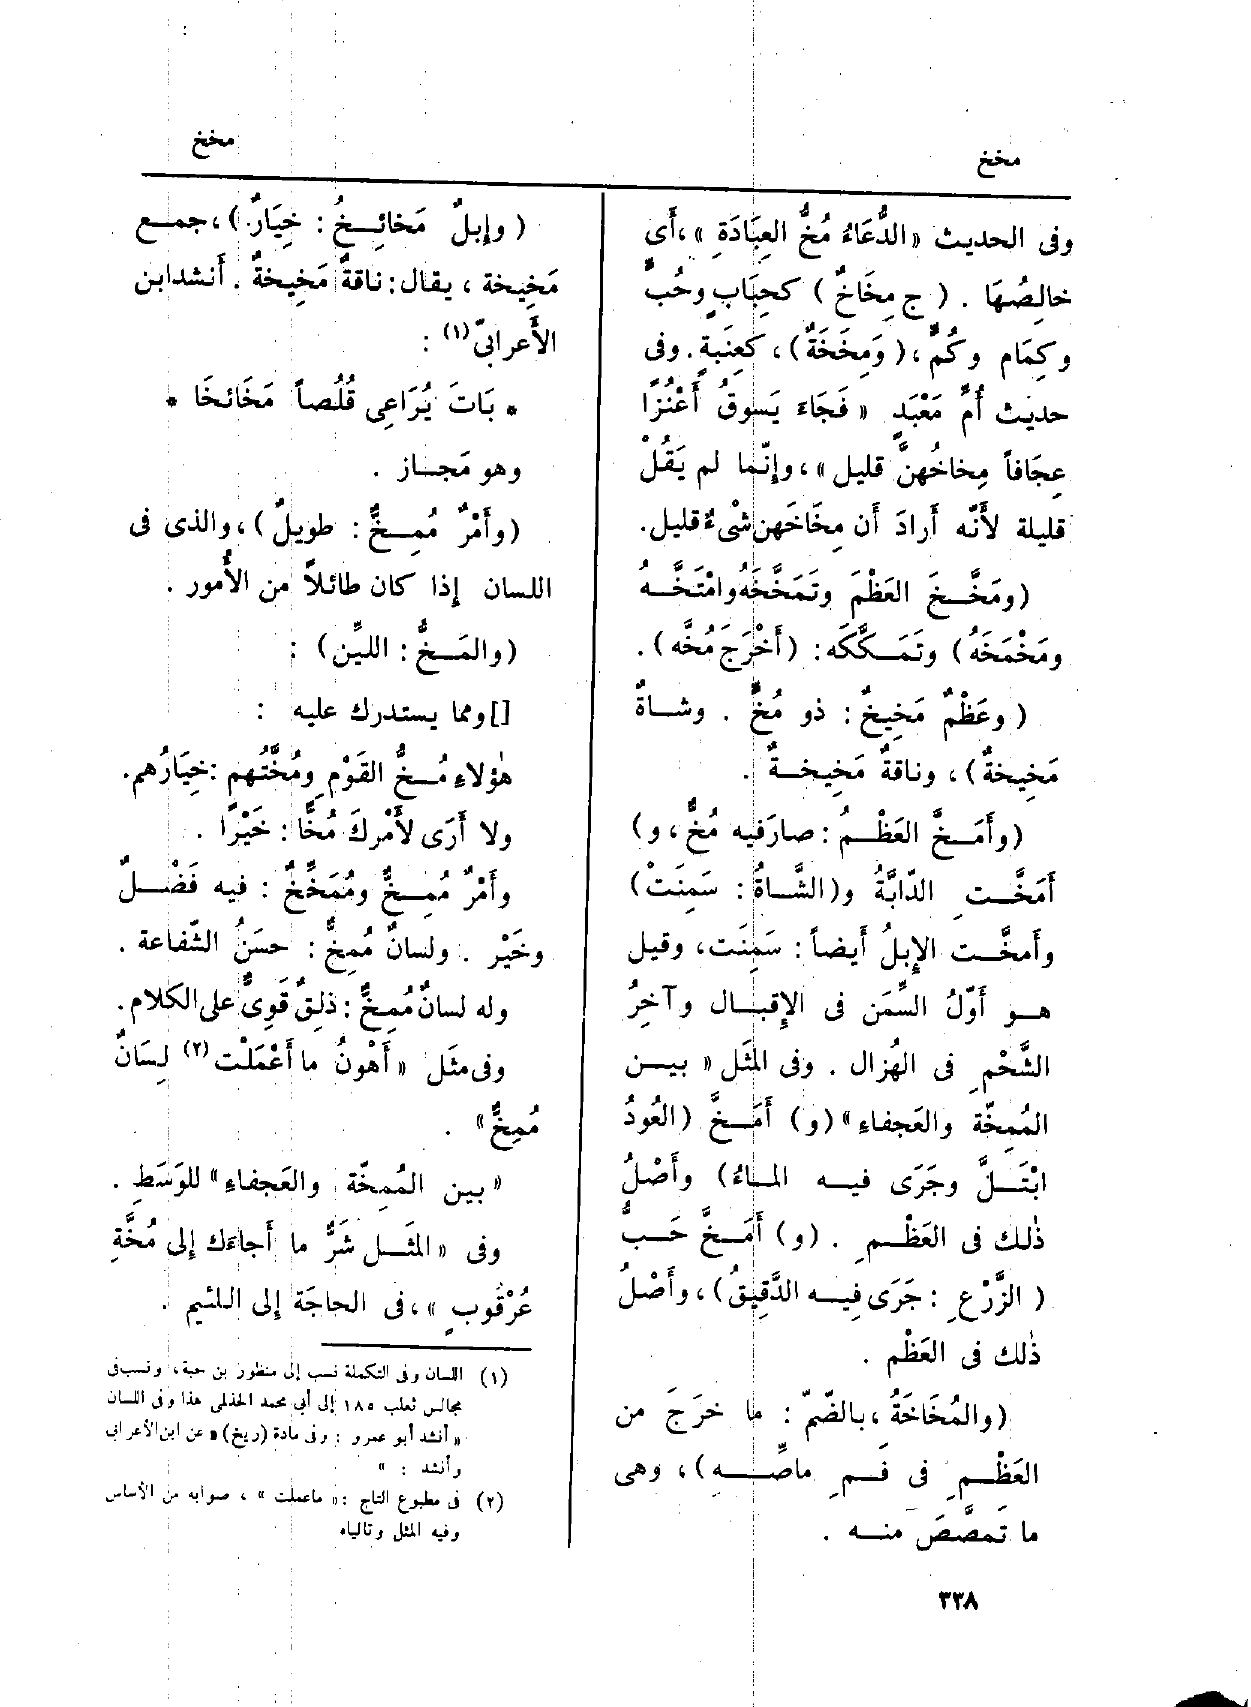 مخخ
مخخ
وفى الحديث «الدُّعَاءُ مُخُّ العِبَادَةِ»، أَى
خالِصُهَا . ( ج مِخَاخٌ ) كحِبَابٍ وحُبٍّ
وكِمَام وكُمٍّ، (وَمِخَخَةٌ)، كعِنَبَةٍ. وفى
حديث أُمِّ مَعْبَدٍ « فَجَاءَ يَسوقُ أَعْنُزًا
عِجَافاً مِخاخُهنَّ قليل »، وإنّما لم يَقُلْ
قليلة لأَنّه أَرادَ أَن مِخَاخَهن شْىءٌ قليل.
(ومَخَّخَ العَظْمَ وتَمَخَّخَهُ وامْتَخَّهُ
ومَخْمَخَهُ) وتَمَكَّكَه: (أَخْرَجَ مُخَّه).
( وعَظْمٌ مَخِيخٌ: ذو مُخٍّ . وشاةٌ
مَخِيخةٌ) ، وناقةٌ مَخِيخةٌ .
(وأَمَخَّ العَظْمُ : صارَ فيه مُخٌّ ، و)
أَمَخَّتِ الدّابَّةُ و(الشَّاةُ : سَمِنَتْ)
وأَمخَّت الإِبلُ أَيضاً: سَمِنَت، وقيل
هو أَوّلُ السِّمَن فى الإِقبال وآخِرُ
الشَّحْمِ فى الهُزال . وفى المَثَل « بين
المُمِخّة والعَجفاءِ » (و) أَمَخَّ (العُودُ
ابْتَلَّ وجَرَى فيه الماءُ) وأَصْلُ
ذٰلك فى العَظْمِ . (و) أَمَخَّ حَبُّ
( الزَّرْعِ : جَرَى فِيه الدَّقِيقُ)، وأَصْلُ
ذٰلك فى العَظْم .
(والمُخَاخَةُ ، بالضّمّ : ما خرَجَ من
العَظْمِ فى فَمِ ماصِّهِ) ، وهى
ما تَمصَّصَ منه .
( وإِبلٌ مَخائِخُ : خِيَارٌ )، جمع
مَخِيخة ، يقال: ناقةٌ مَخِيخةٌ . أَنشد ابن
الأَعرابىّ (١) :
* بَاتَ يُرَاعِى قُلُصاً مَخَائخَا *
وهو مَجاز .
(وأَمْرٌ مُمِخٌّ : طويلٌ)، والذى فى
اللسان إذا كان طائلاً من الأُمور .
(والمَخُّ : الليِّن) :
[] ومما يستدرك عليه :
هٰؤلاءِ مُخُّ القَوْمِ ومُخَّتُهم : خِيَارُهم.
ولا أَرَى لأَمْرِكَ مُخًّا : خَيْرًا .
وأَمْرٌ مُمِخٌّ ومُمَخِّخٌ : فيه فَضْلٌ
وخَيْر . ولسانٌ مُمِخٌّ : حسَنُ الشّفاعة .
وله لسانٌ مُمِخٌّ : ذلِقٌ قَوِىٌّ على الكلام.
وفى مثَل « أَهْونُ ما أَعْمَلْت (٢) لِسَانٌ
مُمِخٌّ» .
« بين المُمِخّة والعَجفاءِ » للوَسَطِ .
وفى « المثَل شَرٌّ ما أَجاءَك إِلى مُخَّةِ
عُرْقُوبٍ »، فى الحاجَة إِلى اللئيم .
(١) اللسان وفى التكملة نسب إلى منظور بن حبة، ونسب فى
مجالس ثعلب ١٨٥ إلى أبى محمد الحذلمى هذا وفى اللسان
« أنشد أبو عمرو : وفى مادة (ربخ) « عن ابن الأعرابى
وأنشد : »
(٢) فى مطبوع التاج : « ماعملت » ، صوابه من الأساس
وفيه المثل وتالياه
٣٣٨